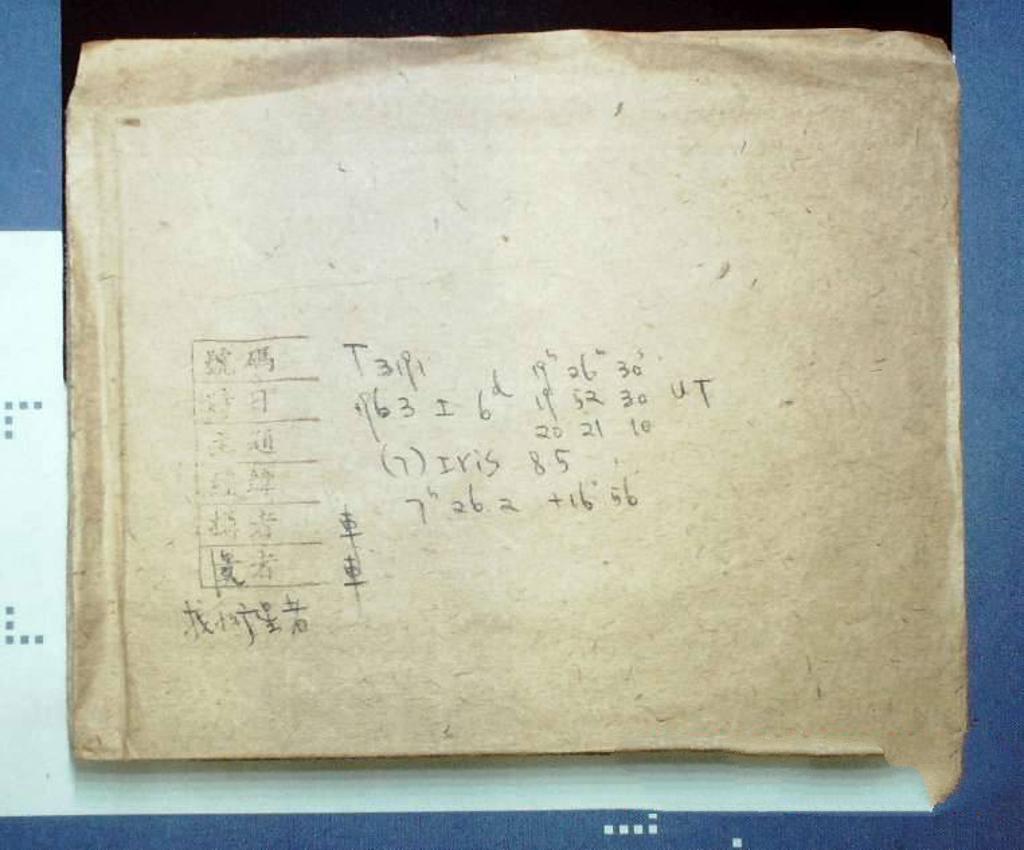 號碼 T3191
時日 1963 I 6ᵈ 19ʰ 26ᵐ 30ˢ
19 52 30 UT
20 21 10
主題 (7) Iris 8.5
經緯 7ʰ 26.2 +16° 56'
攝者 車
者 車
找小行星者